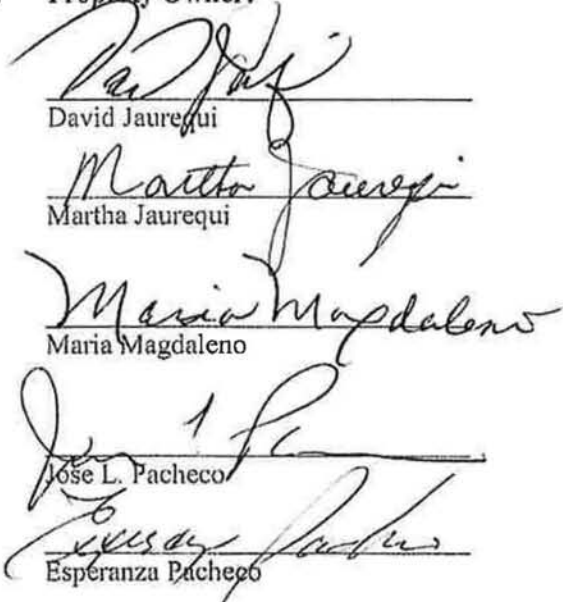 Property Owner:
David Jaurequi
Martha Jauregui
Martha Jaurequi
Maria Magdaleno
Maria Magdaleno
Jose L. Pacheco
Esperanza Pacheco